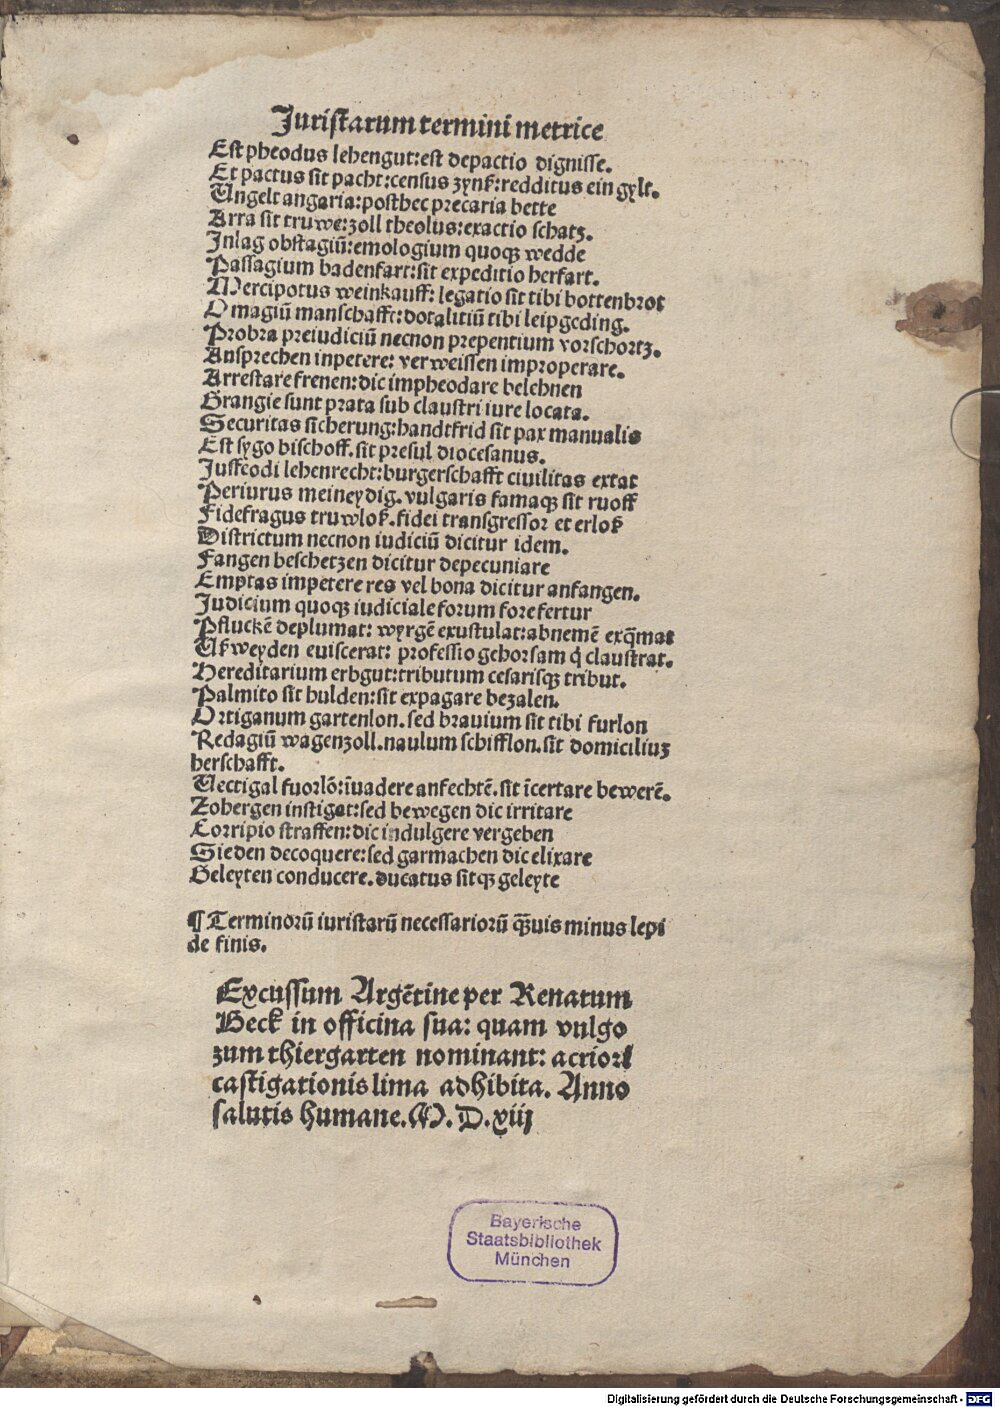 Juristarum termini metrice
Est pheodus lehengut: est depactio dignisse.
Et pactus sit pacht: census zynk: redditus ein gylt.
Ungelt angaria: posthec precaria bette
Arra sit truwe: zoll theolus: exactio schatz.
Inlag obstagiū: emologium quoqꝫ wedde
Passagium badenfart: sit expeditio herfart.
Mercipotus weinkauff: legatio sit tibi bottenbrot
Omagiū manschafft: dotalitiū tibi leipgeding.
Probra preiudiciū necnon prepentium vorschortz.
Ansprechen inpetere: verweissen improperare.
Arrestare frenen: dic impheodare belehnen
Grangie sunt prata sub claustri iure locata.
Securitas sicherung: handtfrid sit pax manualis
Est sygo bischoff. sit presul diocesanus.
Jusfeodi lehenrecht: burgerschafft ciuilitas extat
Periurus meineydig. vulgaris famaqꝫ sit ruoff
Fidefragus truwlok. fidei transgressor et erlok
Districtum necnon iudiciū dicitur idem.
Fangen beschetzen dicitur depecuniare
Emptas impetere res vel bona dicitur anfangen.
Judicium quoqꝫ iudiciale forum fore fertur
Pfluckē deplumat: wyrgē exustulat: abnemē exq̄mat
Ukweyden euiscerat: professio gehorsam q̄ claustrat.
Hereditarium erbgut: tributum cesarisqꝫ tribut.
Palmito sit hulden: sit expagare bezalen.
Ortiganum gartenlon. sed brauium sit tibi furlon
Redagiū wagenzoll. naulum schifflon. sit domiciliuꝫ
herschafft.
Uectigal fuorlō: īuadere anfechtē. sit īcertare bewerē.
Zobergen instigat: sed bewegen dic irritare
Corripio straffen: dic indulgere vergeben
Sieden decoquere: sed garmachen dic elixare
Geleyten conducere. ducatus sitqꝫ geleyte
¶ Terminorū iuristarū necessariorū q̄uis minus lepi
de finis.
Excussum Argētine per Renatum
Beck in officina sua: quam vulgo
zum thiergarten nominant: acriori
castigationis lima adhibita. Anno
salutis humane. M. D. xiij
Bayerische
Staatsbibliothek
München
Digitalisierung gefördert durch die Deutsche Forschungsgemeinschaft - DFG